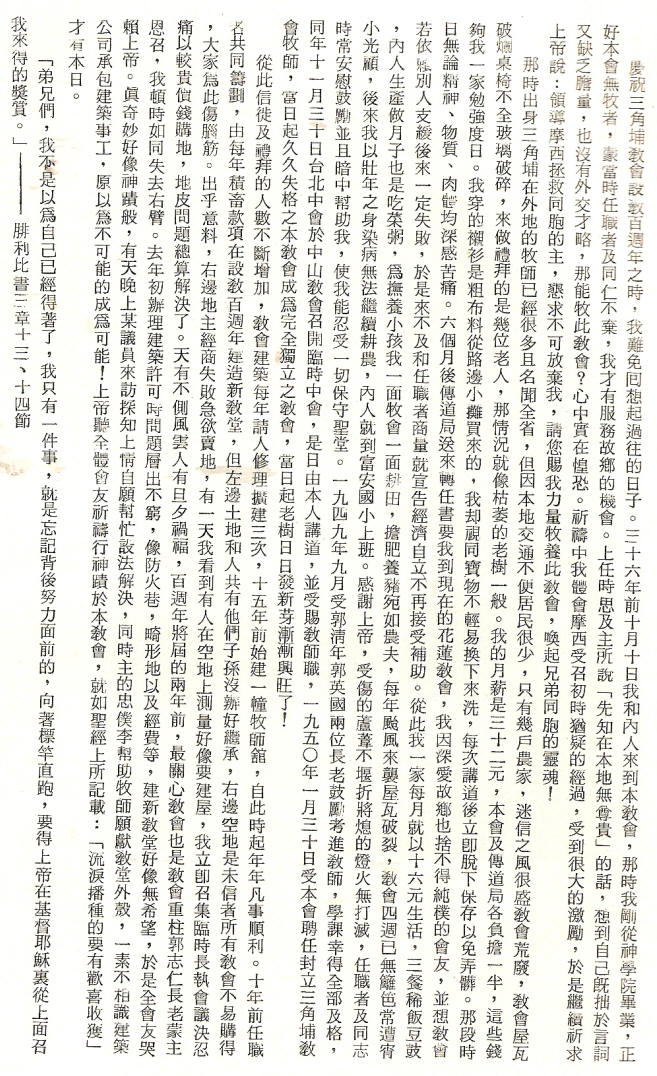 慶祝三角埔教會設教百週年之時，我難免回想起過往的日子。三十六年前十月十日我和內人來到本教會，那時我剛從神學院畢業，正
好本會無牧者，蒙當時任職者及同仁不棄，我才有服務故鄉的機會。上任時思及主所說「先知在本地無尊貴」的話，想到自己既拙於言詞
又缺乏膽量，也沒有外交才略，那能牧此教會？心中實在惶恐。祈禱中我體會摩西受召初時猶疑的經過，受到很大的激勵，於是繼續祈求
上帝說：領導摩西拯救同胞的主，懇求不可放棄我，請您賜我力量牧養此教會，喚起兄弟同胞的靈魂！
那時出身三角埔在外地的牧師已經很多且名聞全省，但因本地交通不便居民很少，只有幾戶農家，迷信之風很盛教會荒廢，教會屋瓦
破爛桌椅不全玻璃破碎，來做禮拜的是幾位老人，那情況就像枯萎的老樹一般。我的月薪是三十二元，本會及傳道局各負擔一半，這些錢
夠我一家勉強度日。我穿的襯衫是粗布料從路邊小攤買來的，我却視同寶物不輕易換下來洗，每次講道後立即脫下保存以免弄髒。那段時
日無論精神、物質、肉體均深感苦痛。六個月後傳道局送來轉任書要我到現在的花蓮教會，我因深愛故鄉也捨不得純樸的會友，並想教會
若依賴別人支緩後來一定失敗，於是來不及和任職者商量就宣告經濟自立不再接受補助。從此我一家每月就以十六元生活，三餐稀飯豆豉
，內人生產做月子也是吃菜粥，爲撫養小孩我一面牧會一面耕田，擔肥養豬宛如農夫，每年颱風來襲屋瓦破裂，教會四週已無籬笆常遭宵
小光顧，後來我以壯年之身染病無法繼續耕農，內人就到富安國小上班。感謝上帝，受傷的蘆葦不堰折將熄的燈火無打滅，任職者及同志
時常安慰鼓勵並且暗中幫助我，使我能忍受一切保守聖堂。一九四九年九月受郭淸年郭英國兩位長老鼓勵考進教師，學課幸得全部及格，
同年十一月三十日台北中會於中山教會召開臨時中會，是日由本人講道，並受賜教師職，一九五〇年一月三十日受本會聘任封立三角埔教
會牧師，當日起久久失格之本教會成爲完全獨立之教會，當日起老樹日日發新芽漸漸興旺了！
從此信徒及禮拜的人數不斷增加，教會建築每年請人修理擴建三次，十五年前始建一幢牧師舘，自此時起年年凡事順利。十年前任職
者共同籌劃，由每年積蓄款項在設教百週年建造新教堂，但左邊土地和人共有他們子孫沒辦好繼承，右邊空地是未信者所有教會不易購得
，大家爲此傷腦筋。出乎意料，右邊地主經商失敗急欲賣地，有一天我看到有人在空地上測量好像要建屋，我立卽召集臨時長執會議決忍
痛以較貴價錢購地，地皮問題總算解決了。天有不側風雲人有旦夕禍福，百週年將屆的兩年前，最關心教會也是教會重柱郭志仁長老蒙主
恩召，我頓時如同失去右臂。去年初辦理建築許可時問題層出不窮，像防火巷，畸形地以及經費等，建新教堂好像無希望，於是全會友哭
賴上帝。眞奇妙好像神蹟般，有天晚上某議員來訪探知上情自願幫忙設法解決，同時主的忠僕李幫助牧師願獻教堂外殼，一素不相識建築
公司承包建築事工，原以爲不可能的成爲可能！上帝聽全體會友祈禱行神蹟於本教會，就如聖經上所記載：「流淚播種的要有歡喜收獲」
才有本日。
「弟兄們，我不是以爲自己已經得著了，我只有一件事，就是忘記背後努力面前的，向著標竿直跑，要得上帝在基督耶穌裏從上面召
我來得的獎賞。」——— 腓利比書三章十三、十四節